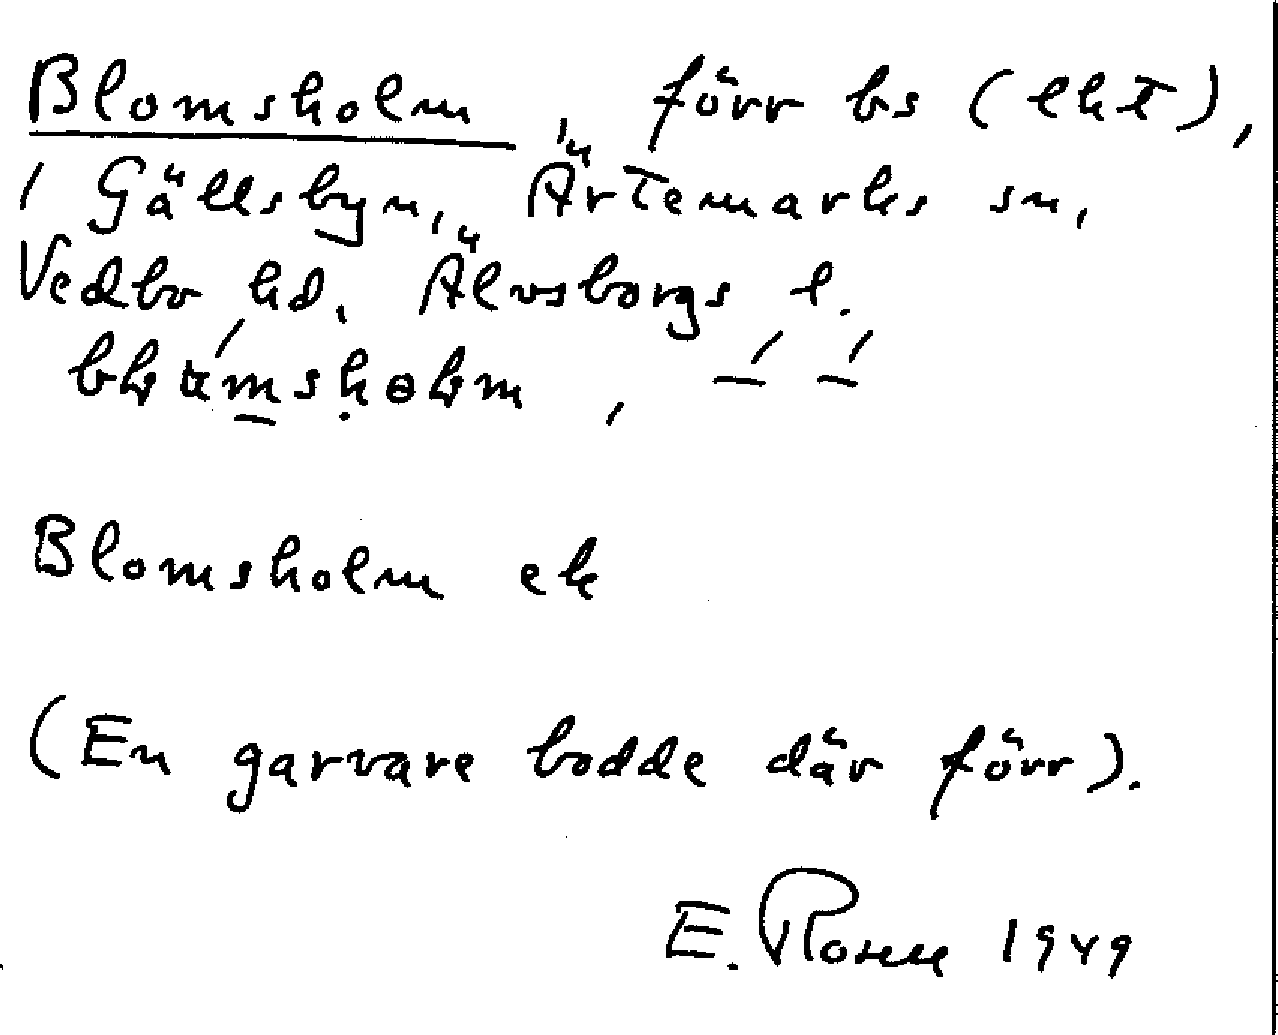 Blomsholm, förr bs (lht),
i Gällsbyn, Ärtemarks sn,
Vedbo hd, Älvsborgs l.
Blomsholm ek
(En garvare bodde där förr).
E. Rosell 1949